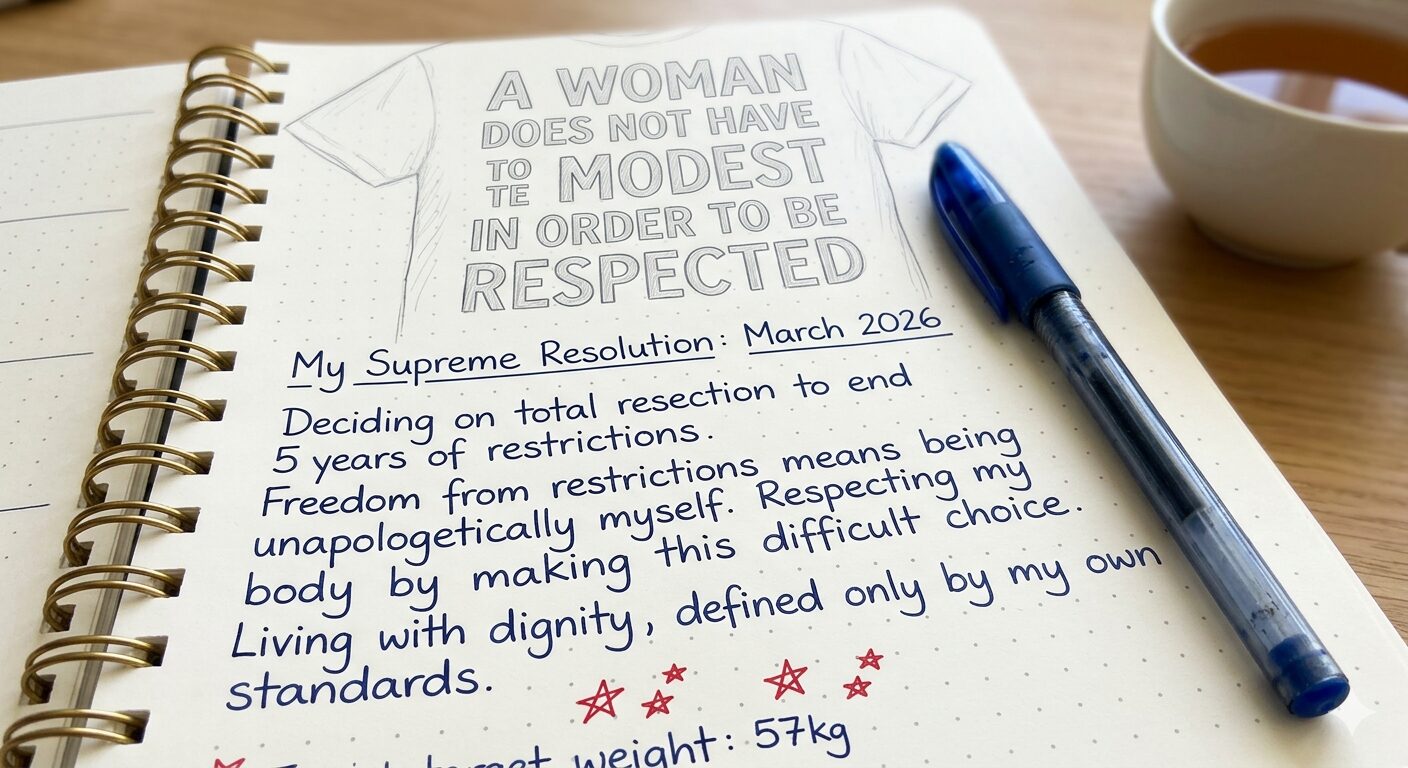 A WOMAN
DOES NOT HAVE
TO
TE MODEST
IN ORDER TO BE
RESPECTED
My Supreme Resolution: March 2026
Deciding on total resection to end
5 years of restrictions.
Freedom from restrictions means being
unapologetically myself. Respecting my
body by making this difficult choice.
Living with dignity, defined only by my own
standards.
weight: 57kg